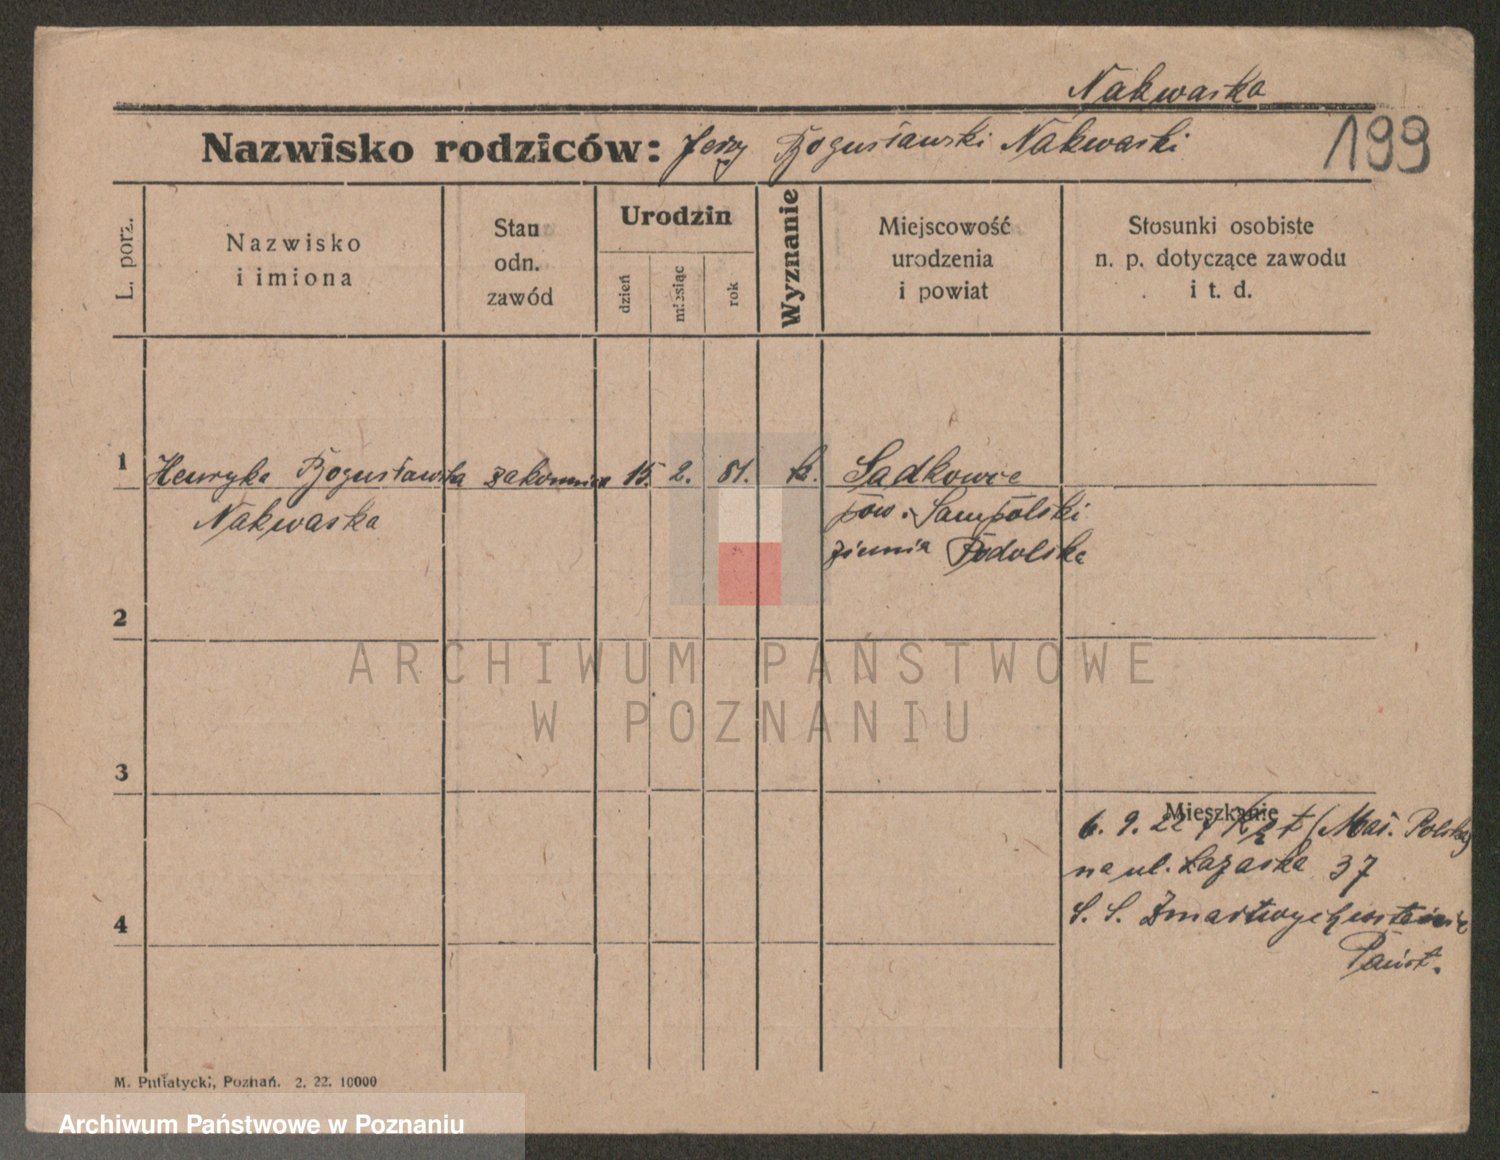 Nakwaska
Nazwisko rodziców: Jerzy Bogusławski Nakwaski
199
L. porz.
Nazwisko
i imiona
Stan
odn.
zawód
Urodzin
dzień
miesiąc
rok
Wyznanie
Miejscowość
urodzenia
i powiat
Stosunki osobiste
n. p. dotyczące zawodu
i t. d.
1 Henryka Bogusławska zakonnica 15. 2. 81. k. Sadkowce
Nakwaska pow. Jampolski
ziemia Podolska
2
3
Mieszkanie
6. 9. 22 z (Mał. Polska)
na ul. Łazarska 37
4 S. S. Zmartwychwstania
Pańsk.
M. Putiatycki, Poznań. 2. 22. 10000
ARCHIWUM PAŃSTWOWE
W POZNANIU
Archiwum Państwowe w Poznaniu